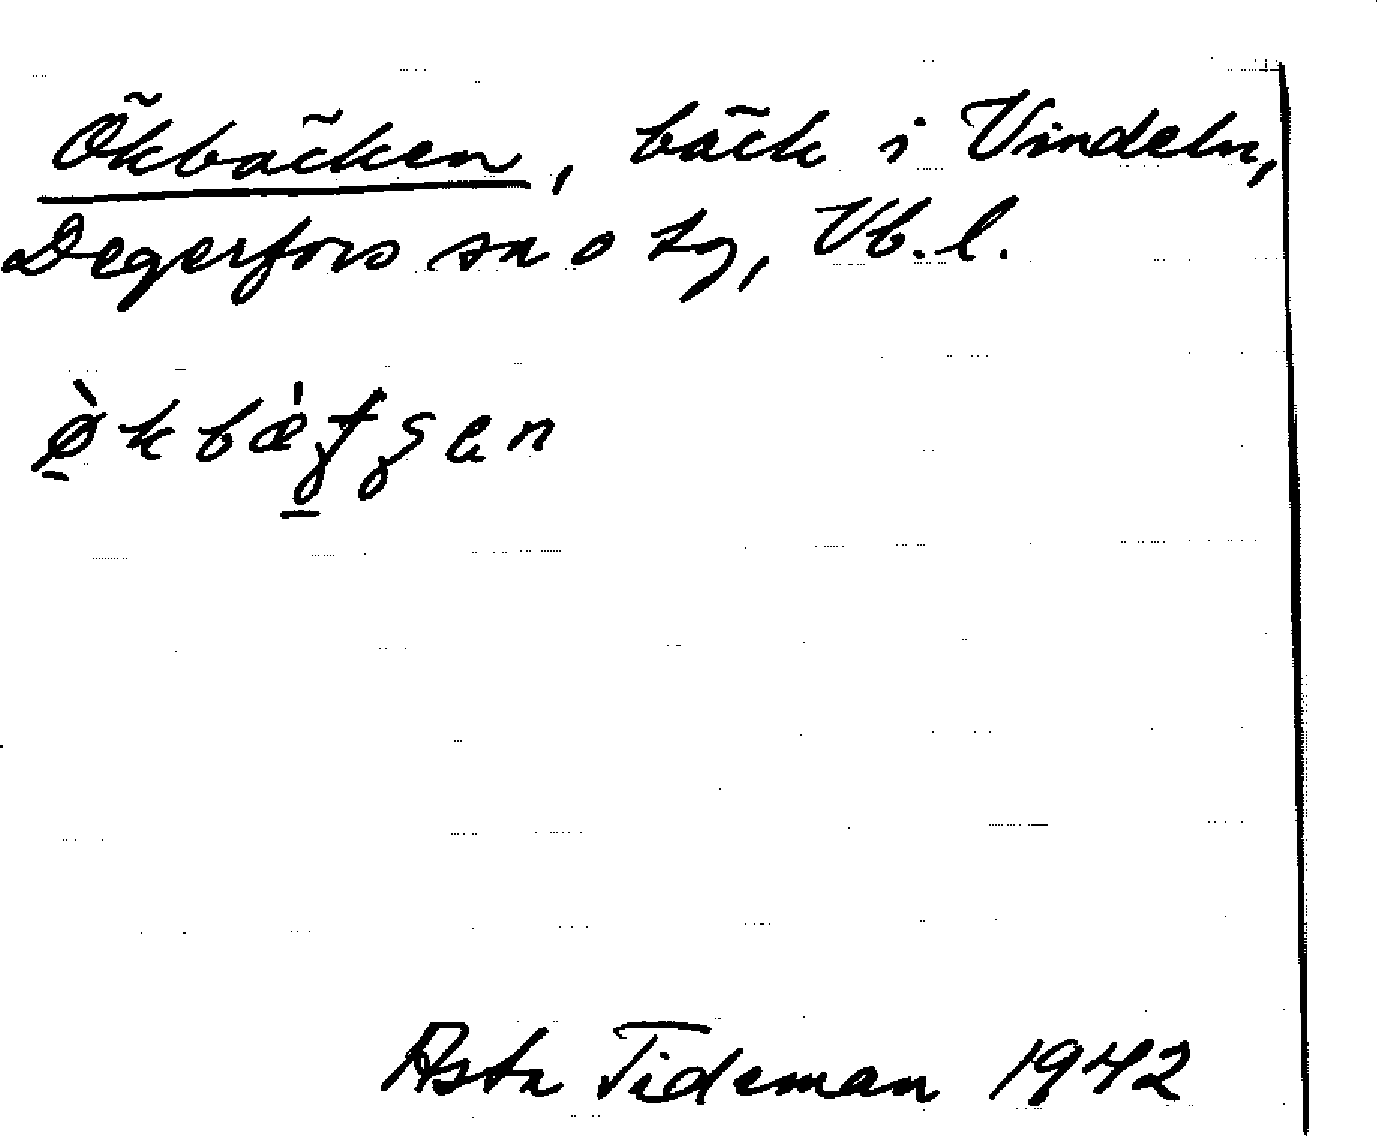 Ökbäcken, bäck i Vindeln,
Degerfors sn o tg, Vb. l.
Asta Tideman 1942